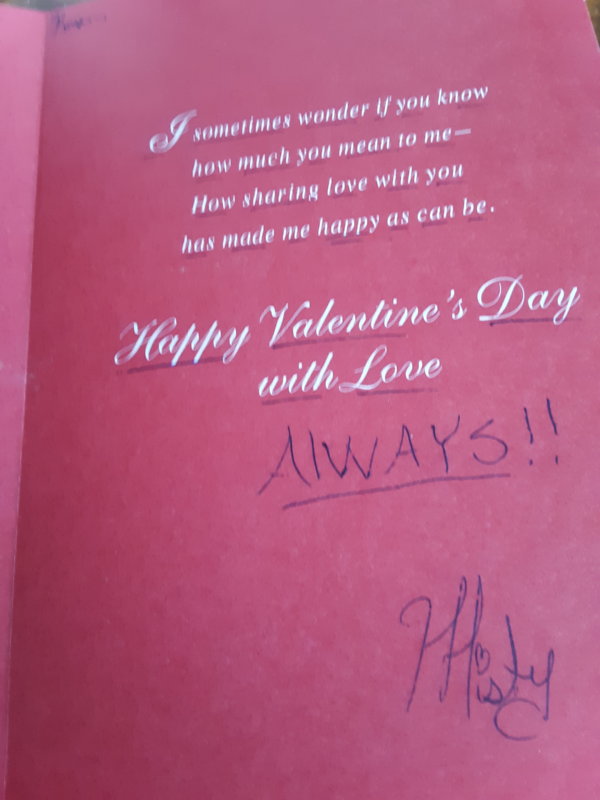 I sometimes wonder if you know
how much you mean to me—
How sharing love with you
has made me happy as can be.
Happy Valentine's Day
with Love
AlWAYS!!
Misty